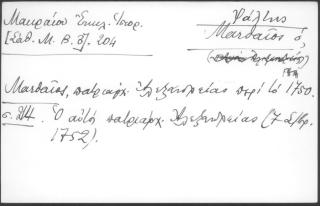 Μακραίου Ἐκκλ. Ἱστορ.
[Σάθ. Μ. Β. Γ]. 204
Ψάλτης
Ματθαῖος ὁ,
Ματθαῖος, πατριάρχ. Ἀλεξανδρείας περὶ τὸ 1750.
σ. 214. Ὁ αὐτὸς πατριάρχ. Ἀλεξανδρείας (7 Σ/βρ.
1752).